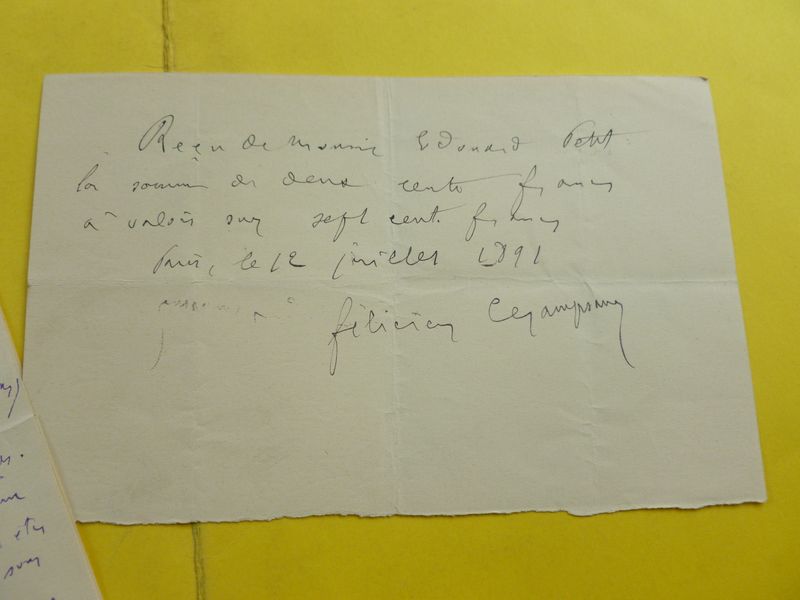 Reçu de Monsieur Edouard Petit
la somme de deux cents francs
à valoir sur sept cent francs
Paris, le 12 juillet 1891
Félicien Champsaur
ets
sur